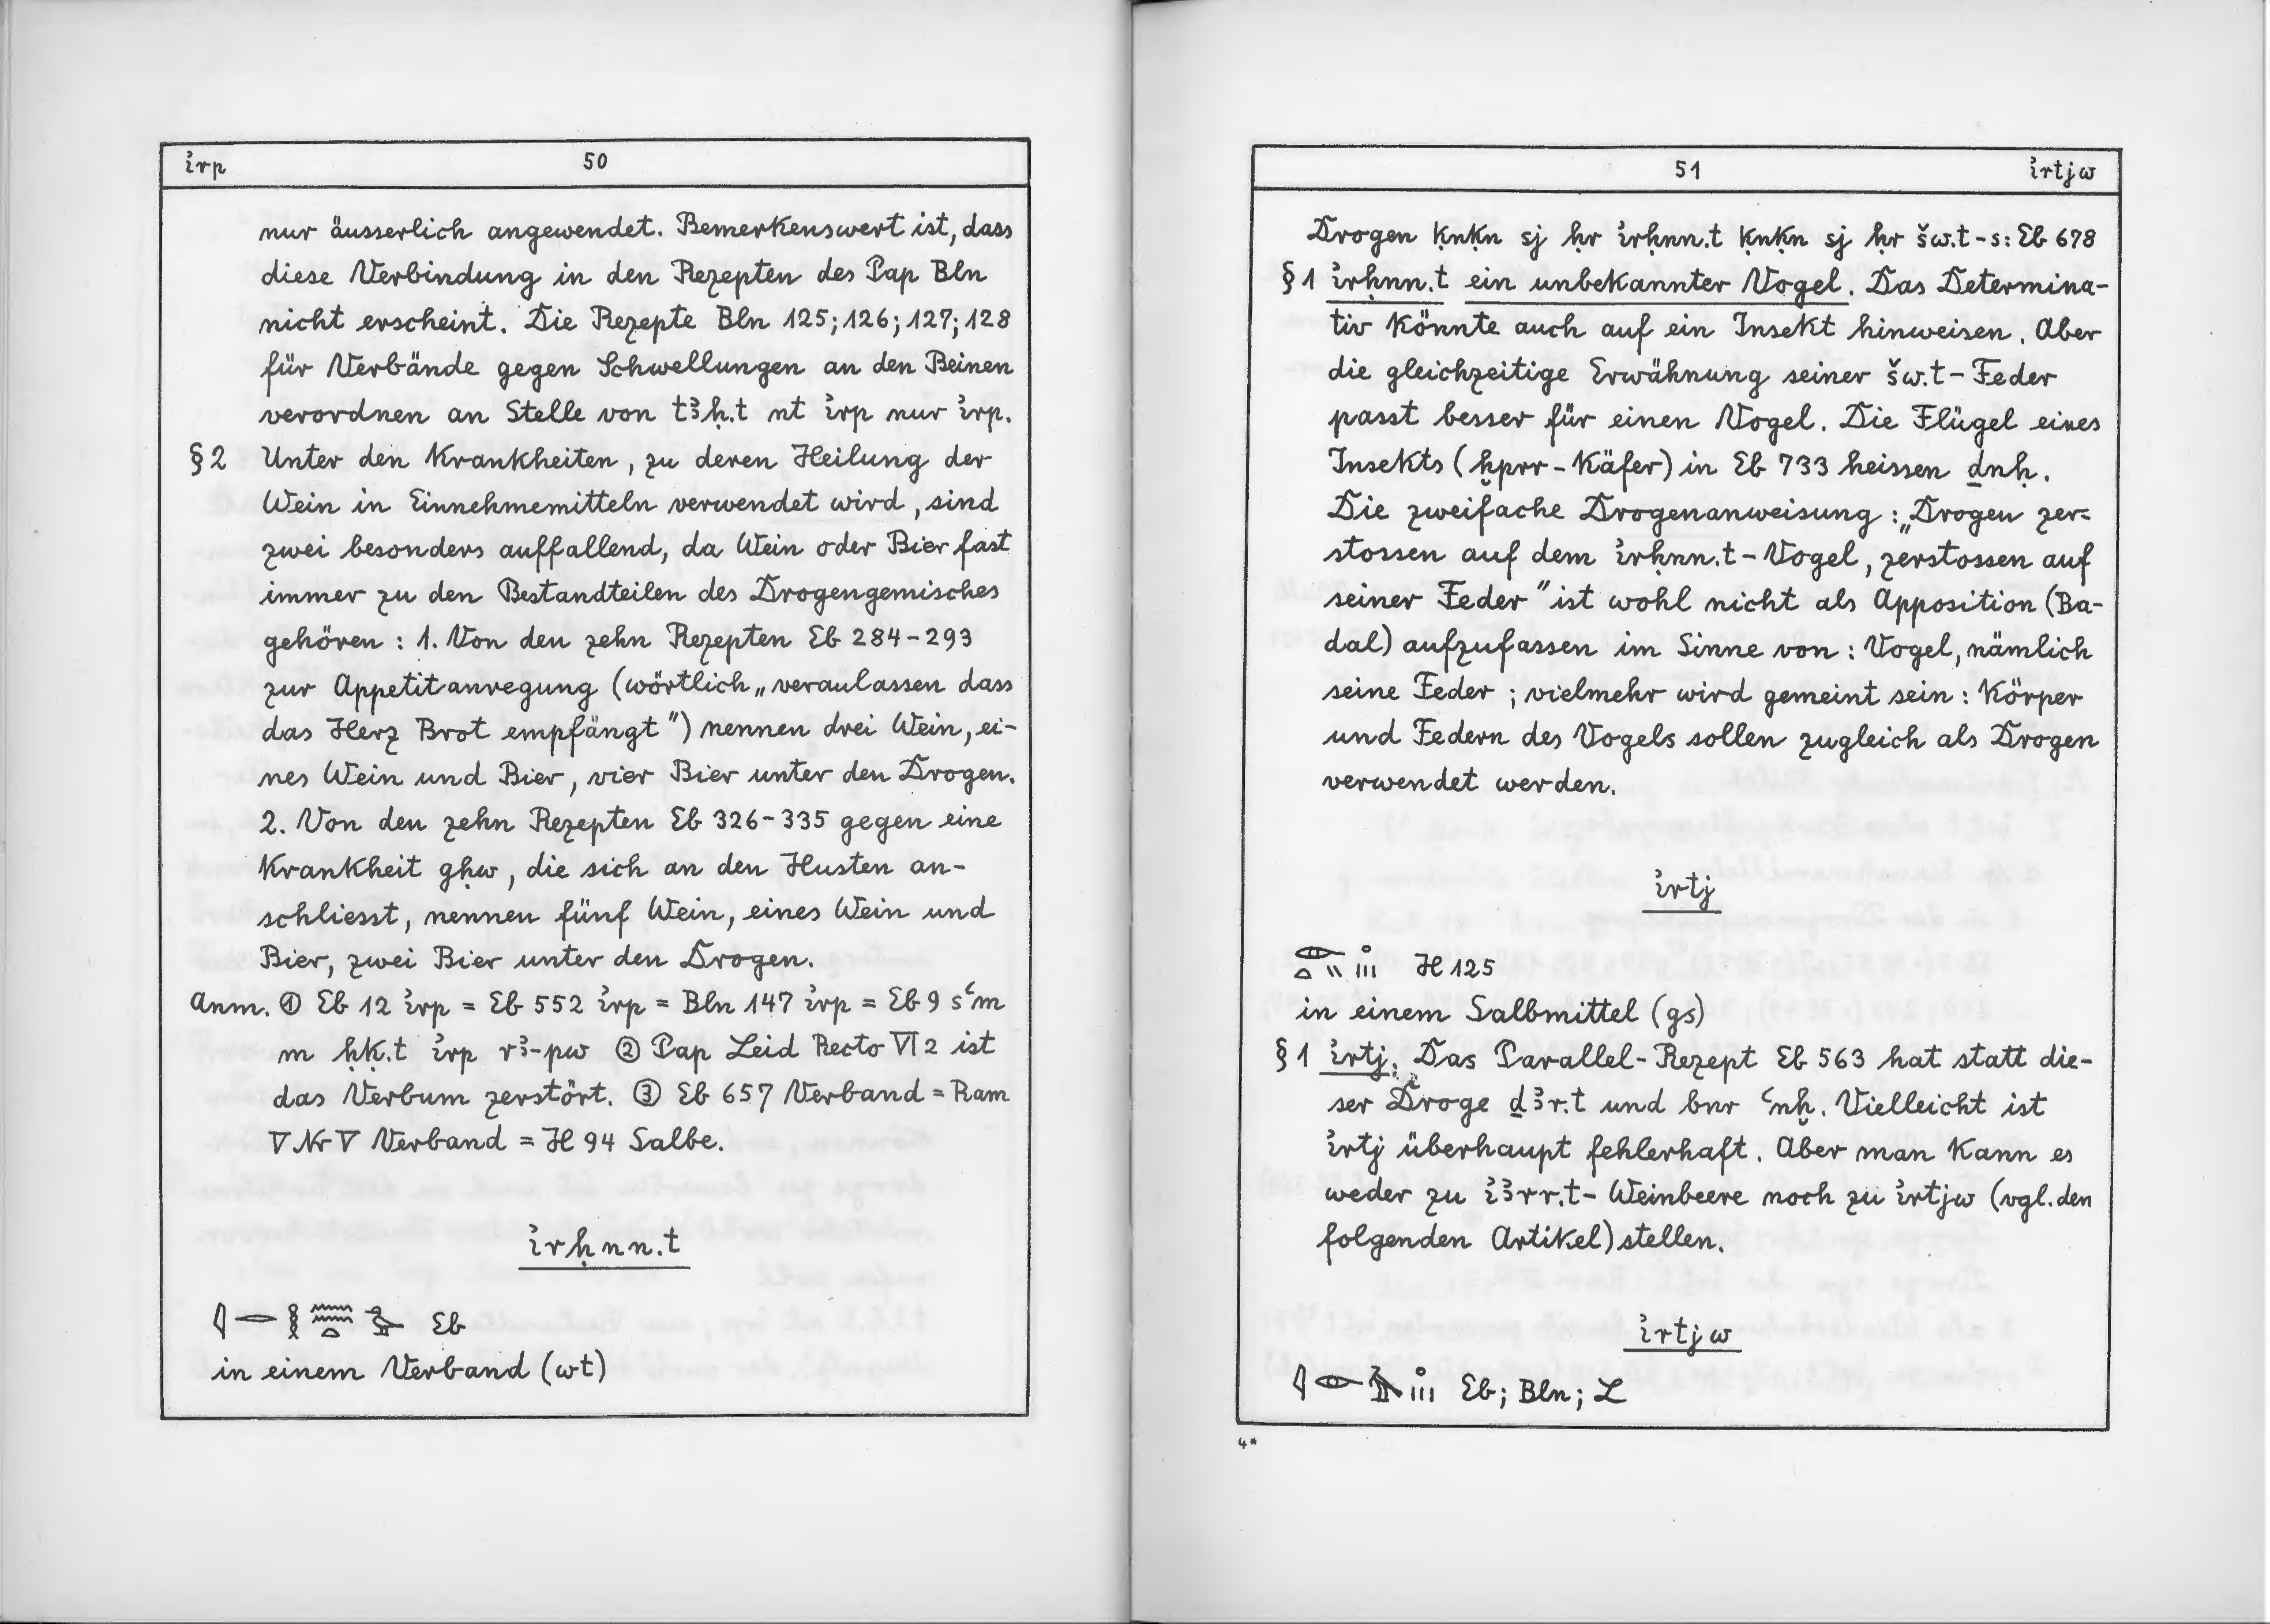 i҆rp 50
nur äusserlich angewendet. Bemerkenswert ist, dass
diese Verbindung in den Rezepten des Pap Bln
nicht erscheint. Die Rezepte Bln 125; 126; 127; 128
für Verbände gegen Schwellungen an den Beinen
verordnen an Stelle von tꜣḥ.t nt i҆rp nur i҆rp.
§ 2 Unter den Krankheiten, zu deren Heilung der
Wein in Einnehmemitteln verwendet wird, sind
zwei besonders auffallend, da Wein oder Bier fast
immer zu den Bestandteilen des Drogengemisches
gehören: 1. Von den zehn Rezepten Eb 284-293
zur Appetitanregung (wörtlich „veranlassen dass
das Herz Brot empfängt") nennen drei Wein, ei-
nes Wein und Bier, vier Bier unter den Drogen.
2. Von den zehn Rezepten Eb 326-335 gegen eine
Krankheit gḥw, die sich an den Husten an-
schliesst, nennen fünf Wein, eines Wein und
Bier, zwei Bier unter den Drogen.
Anm. ① Eb 12 i҆rp = Eb 552 i҆rp = Bln 147 i҆rp = Eb 9 sꜥm
m ḥḳ.t i҆rp rꜣ-pw ② Pap Leid Recto VI 2 ist
das Verbum zerstört. ③ Eb 657 Verband = Ram
V Nr V Verband = H 94 Salbe.
i҆rḥnn.t
Eb
in einem Verband (wt)
51 i҆rtjw
Drogen ḳnḳn sj ḥr i҆rḥnn.t ḳnḳn sj ḥr šw.t-s: Eb 678
§ 1 i҆rḥnn.t ein unbekannter Vogel. Das Determina-
tiv könnte auch auf ein Insekt hinweisen. Aber
die gleichzeitige Erwähnung seiner šw.t-Feder
passt besser für einen Vogel. Die Flügel eines
Insekts (ḫprr-Käfer) in Eb 733 heissen ḏnḥ.
Die zweifache Drogenanweisung: „Drogen zer=
stossen auf dem i҆rḥnn.t-Vogel, zerstossen auf
seiner Feder" ist wohl nicht als Apposition (Ba-
dal) aufzufassen im Sinne von: Vogel, nämlich
seine Feder; vielmehr wird gemeint sein: Körper
und Federn des Vogels sollen zugleich als Drogen
verwendet werden.
i҆rtj
H 125
in einem Salbmittel (gs)
§ 1 i҆rtj. Das Parallel-Rezept Eb 563 hat statt die-
ser Droge ḏꜣr.t und bnr ꜥnḫ. Vielleicht ist
i҆rtj überhaupt fehlerhaft. Aber man kann es
weder zu i҆ꜣrr.t-Weinbeere noch zu i҆rtjw (vgl. den
folgenden Artikel) stellen.
i҆rtjw
Eb; Bln; L
4*